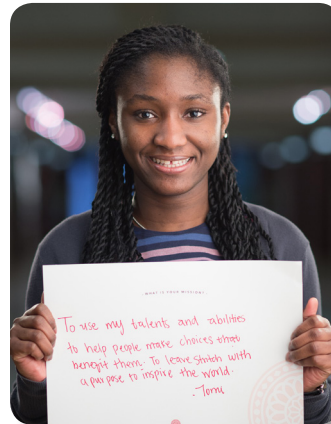 WHAT IS YOUR MISSION?
To use my talents and abilities
to help people make choices that
benefit them. To leave Stritch with
a purpose to inspire the world.
- Tomi